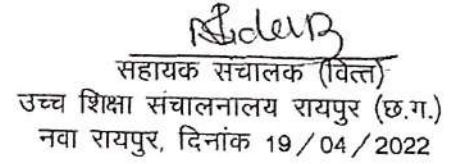 सहायक संचालक (वित्त)
उच्च शिक्षा संचालनालय रायपुर (छ.ग.)
नवा रायपुर, दिनांक 19/04/2022